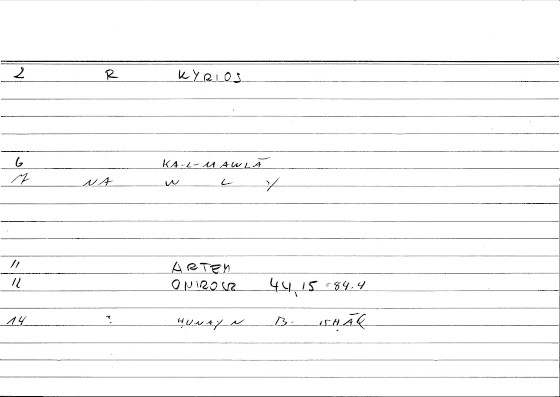 2 R KYRIOS
6 KA-L-MAWLĀ
7 NA W L Y
11 ARTEM
12 ONIROCR 44,15 = 84.4
14 ? ḤUNAYN B. ISḤĀQ